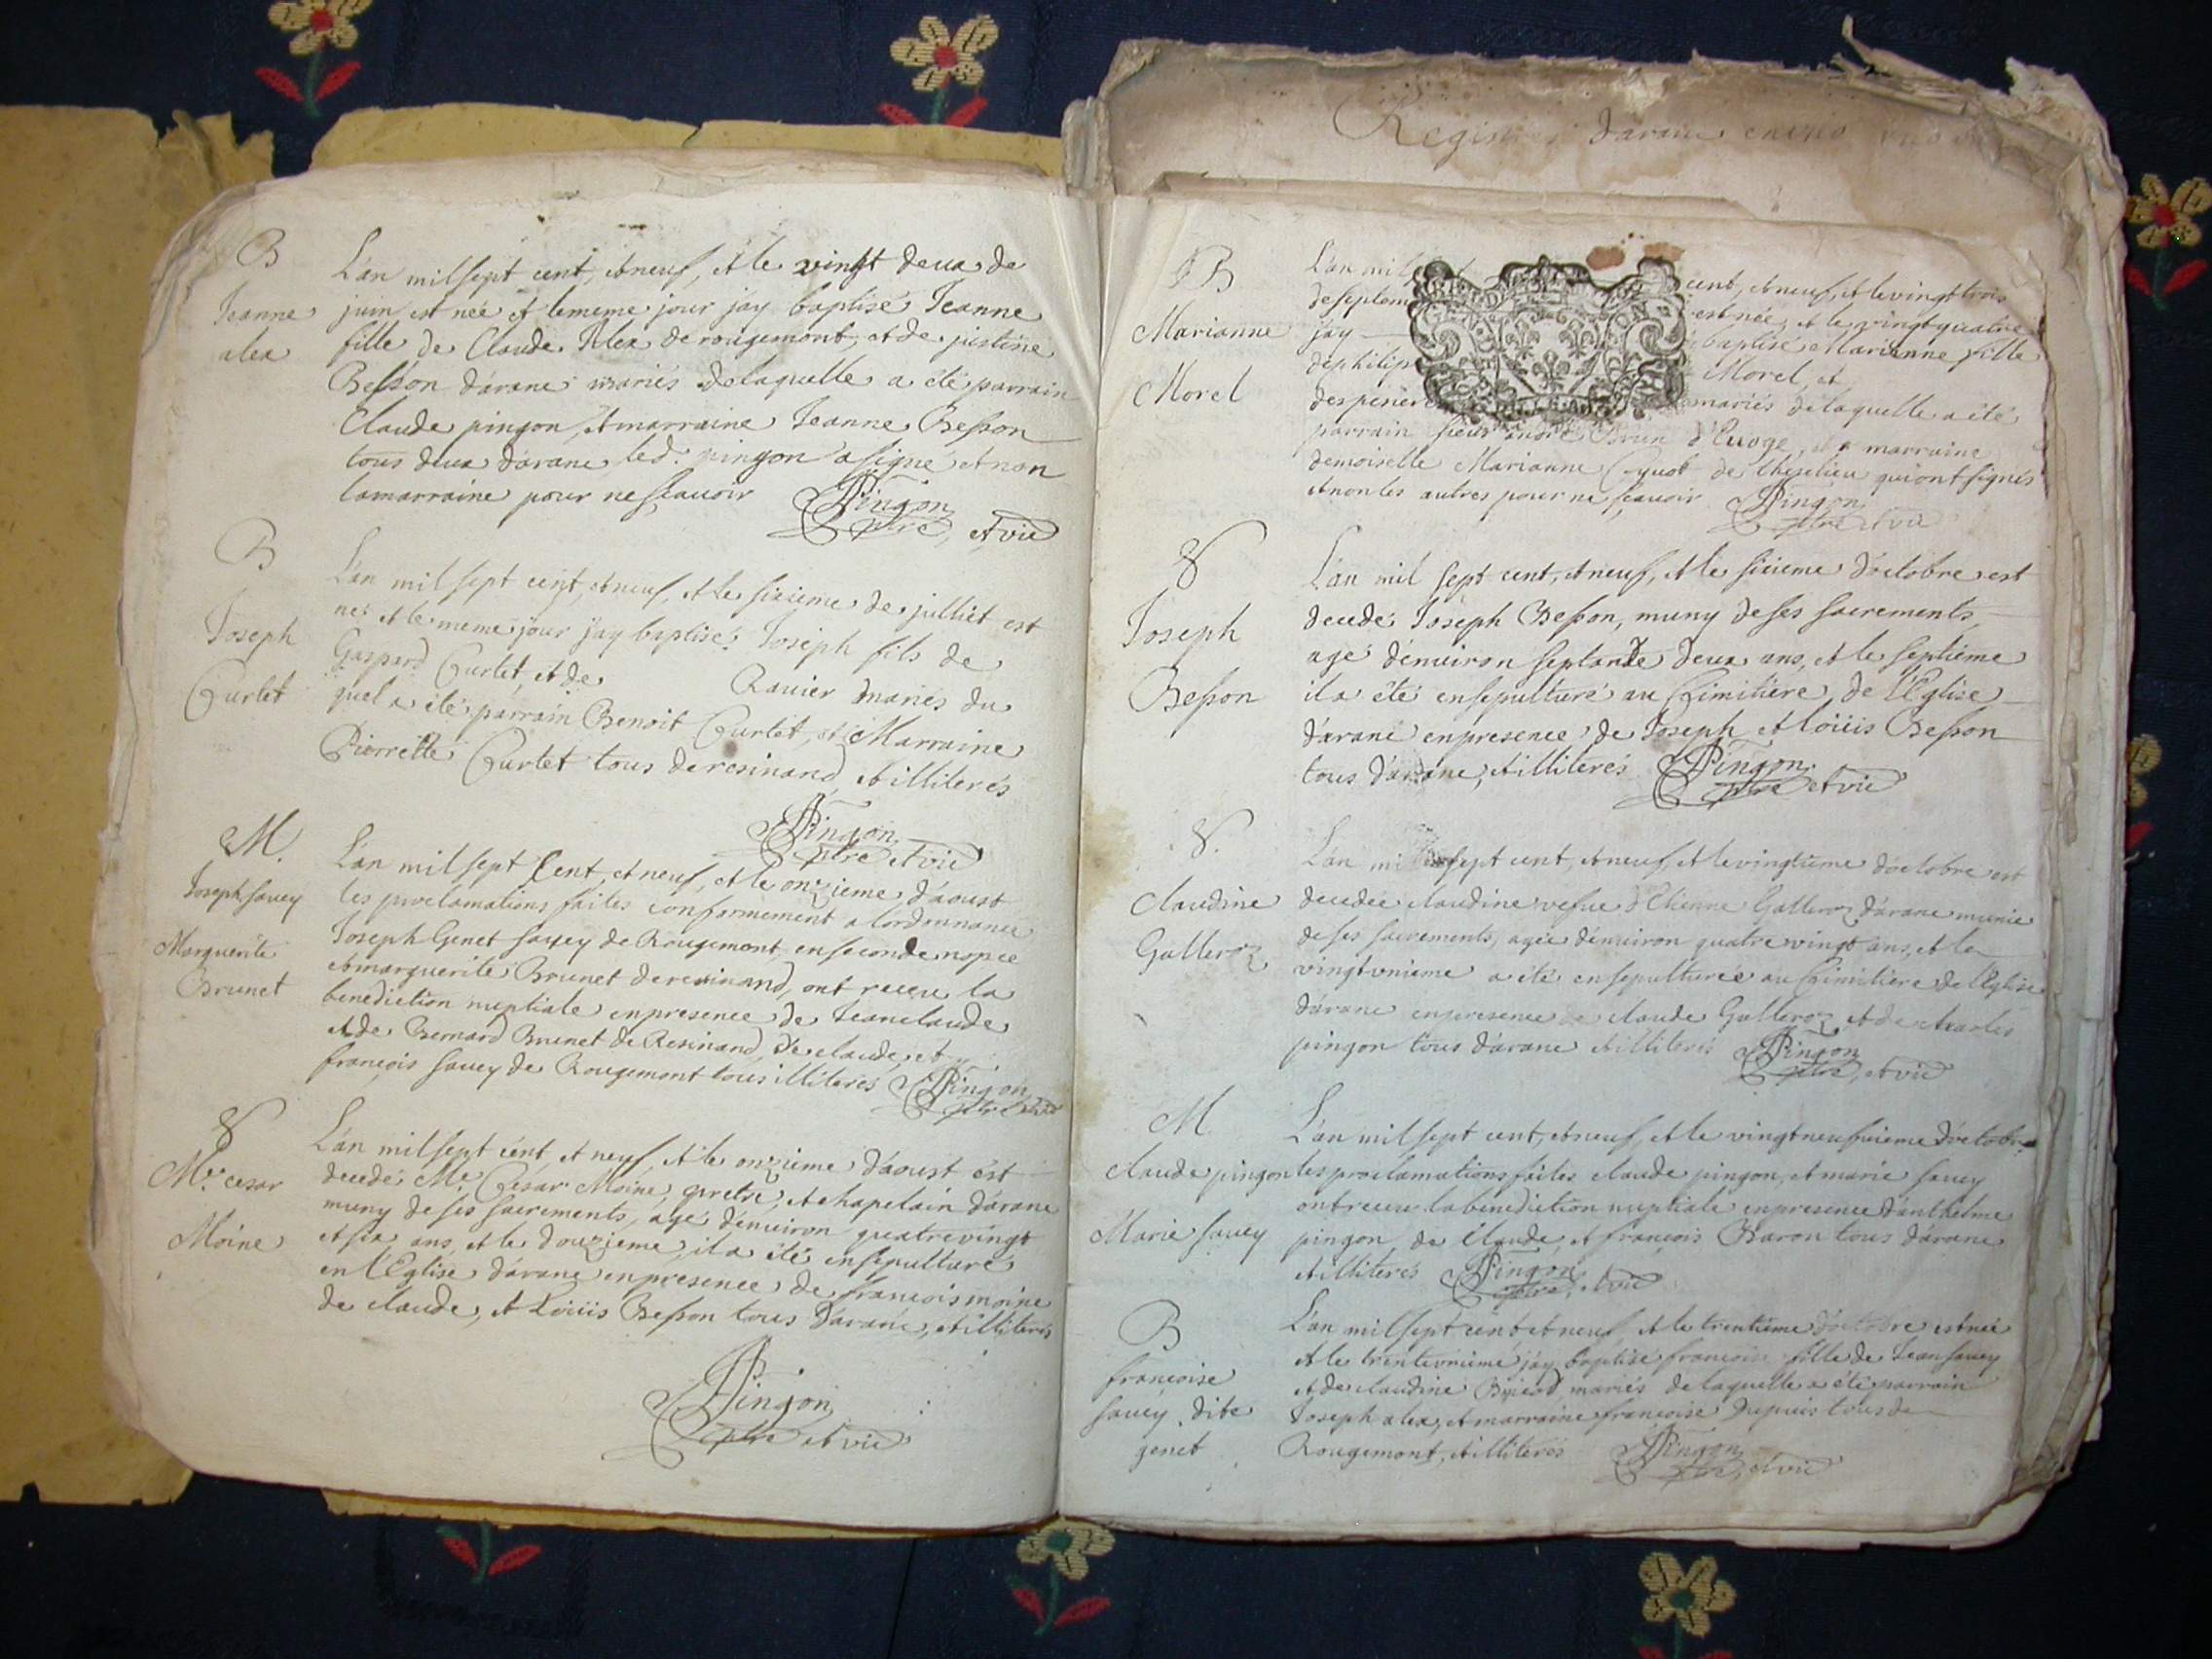 B
Jeanne
alex
L'an mil sept cent, et neuf, et le vingt deux de
juin est née et le meme jour jay baptisé Jeanne
fille de Claude Alex de rougemont, et de justine
Besson d'arane mariés de laquelle a été parrain
Claude pingon, et marraine Jeanne Besson
tous deux d'arane led. pingon a signé et non
la marraine pour ne scauoir Pingon
ptre, et vic
B
Joseph
Curlet
L'an mil sept cent, et neuf, et le sixieme de julliet est
né et le meme jour jay baptisé Joseph fils de
Gaspard Curlet, et de Rauier mariés du
quel a été parrain Benoit Curlet, et Marraine
Pierrette Curlet tous de resinand, et illiterés
Pingon
ptre et vic
M.
Joseph sauey
Marguerite
Brunet
L'an mil sept Cent, et neuf, et le onzieme d'aoust
les proclamations faites conformement a lordonnance
Joseph Genet sauey de Rougemont en seconde nopce
et marguerite Brunet de resinand, ont receu la
benediction nuptiale en presence de Jean claude
et de Bernard Brunet de Resinand, de claude, et
françois sauey de Rougemont tous illiterés Pingon
ptre et vic
S
Mre cesar
Moine
L'an mil sept cent, et neuf, et le onzieme d'aoust est
decedé Mre César Moine, pretre, et chapelain d'arane
muny de ses sacrements, agé d'enuiron quatre vingt
et six ans, et le douzieme, il a été ensepulturé
en l'Eglise d'arane en presence de francois moine
de claude, et Loüis Besson tous d'arane, et illiterés
Pingon
ptre et vic
Registre d'arane
B
Marianne
Morel
L'an mil cent, et neuf, et le vingt trois
de septem est née, et le vingt quatre
jay baptisé Marianne fille
de philip Morel, et
mariés de laquelle a été
parrain sieur andré Brun d'Euoge, et marraine
demoiselle Marianne Cquot de qui ont signés
et non les autres pour ne scauoir Pingon
ptre et vic
S
Joseph
Besson
L'an mil sept cent, et neuf, et le sixieme d'octobre est
decedé Joseph Besson, muny de ses sacrements,
agé d'enuiron septante deux ans, et le septieme
il a été ensepulturé au Cimitiere, de l'Eglise
d'arane en presence de Joseph et loüis Besson
tous d'arane, et illiterés Pingon
ptre et vic
S.
Claudine
Galleroz
L'an mil sept cent, et neuf, et le vingtieme d'octobre est
decedée claudine vefue d'Etienne Galleroz d'arane munie
de ses sacrements, agée d'enuiron quatre vingt ans, et le
vingt vnieme a été ensepulturée au Cimitiere de l'Eglise
d'arane en presence de claude Galleroz et de charles
pingon tous d'arane et illiterés Pingon
ptre, et vic
M
claude pingon
Marie sauey
L'an mil sept cent, et neuf, et le vingt neufuieme d'octobre
les proclamations faites claude pingon, et marie sauey
ont receu la benediction nuptiale en presence d'anthelme
pingon de claude, et francois Baron tous d'arane
et illiterés Pingon
ptre, et vic
B
francoise
sauey dite
genet
L'an mil sept cent et neuf, et le trentieme d'octobre est née
et le trente vnieme jay baptisé francoise fille de Jean sauey
et de claudine mariés de laquelle a été parrain
Joseph alex, et marraine francoise Dupuis tous de
Rougemont, et illiterés Pingon
ptre, et vic